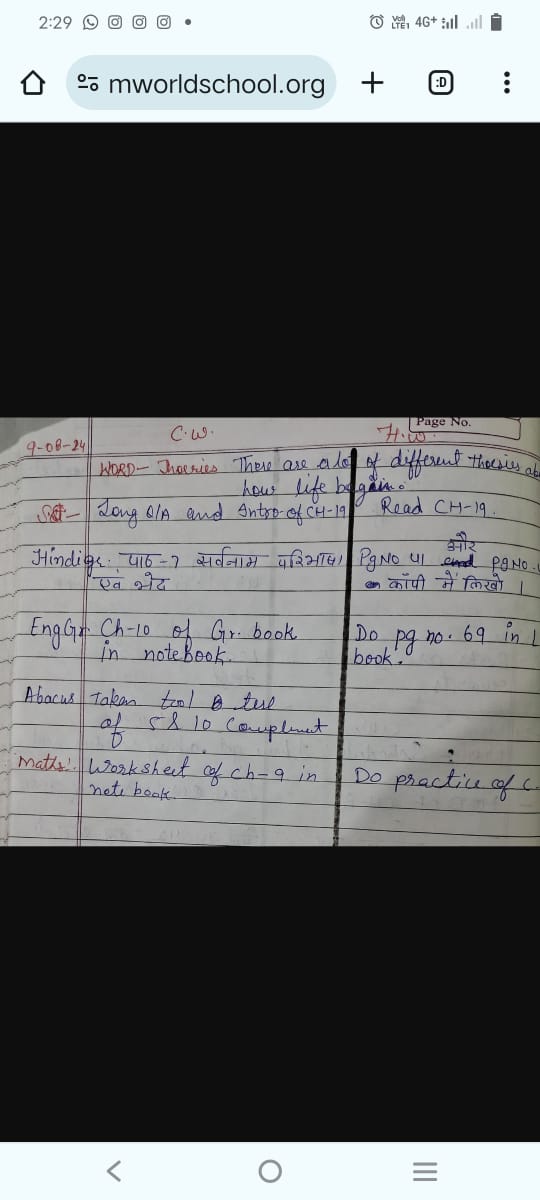 2:29
4G+
mworldschool.org
:D
Page No.
9-08-24 C.W. H.W.
WORD- Theories There are a lot of different theories
how life began.
Long Q/A and Intro- of CH-19 Read CH-19.
Hindi पाठ-7 सर्वनाम परिभाषा Pg No और Pg No.
एवं भेद कॉपी में लिखो ।
Eng Gr. Ch-10 of Gr. book Do pg no. 69 in
in notebook. book.
Abacus Taken
of 5 & 10
Maths:. Worksheet of ch-9 in Do practice of
note book.